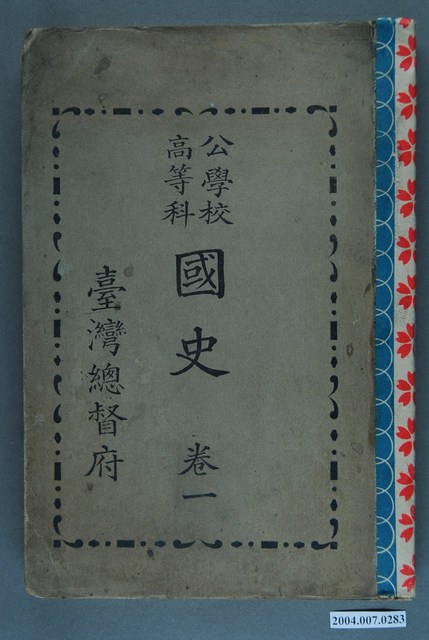 公學校
高等科
國史 卷一
臺灣總督府
2004.007.0283